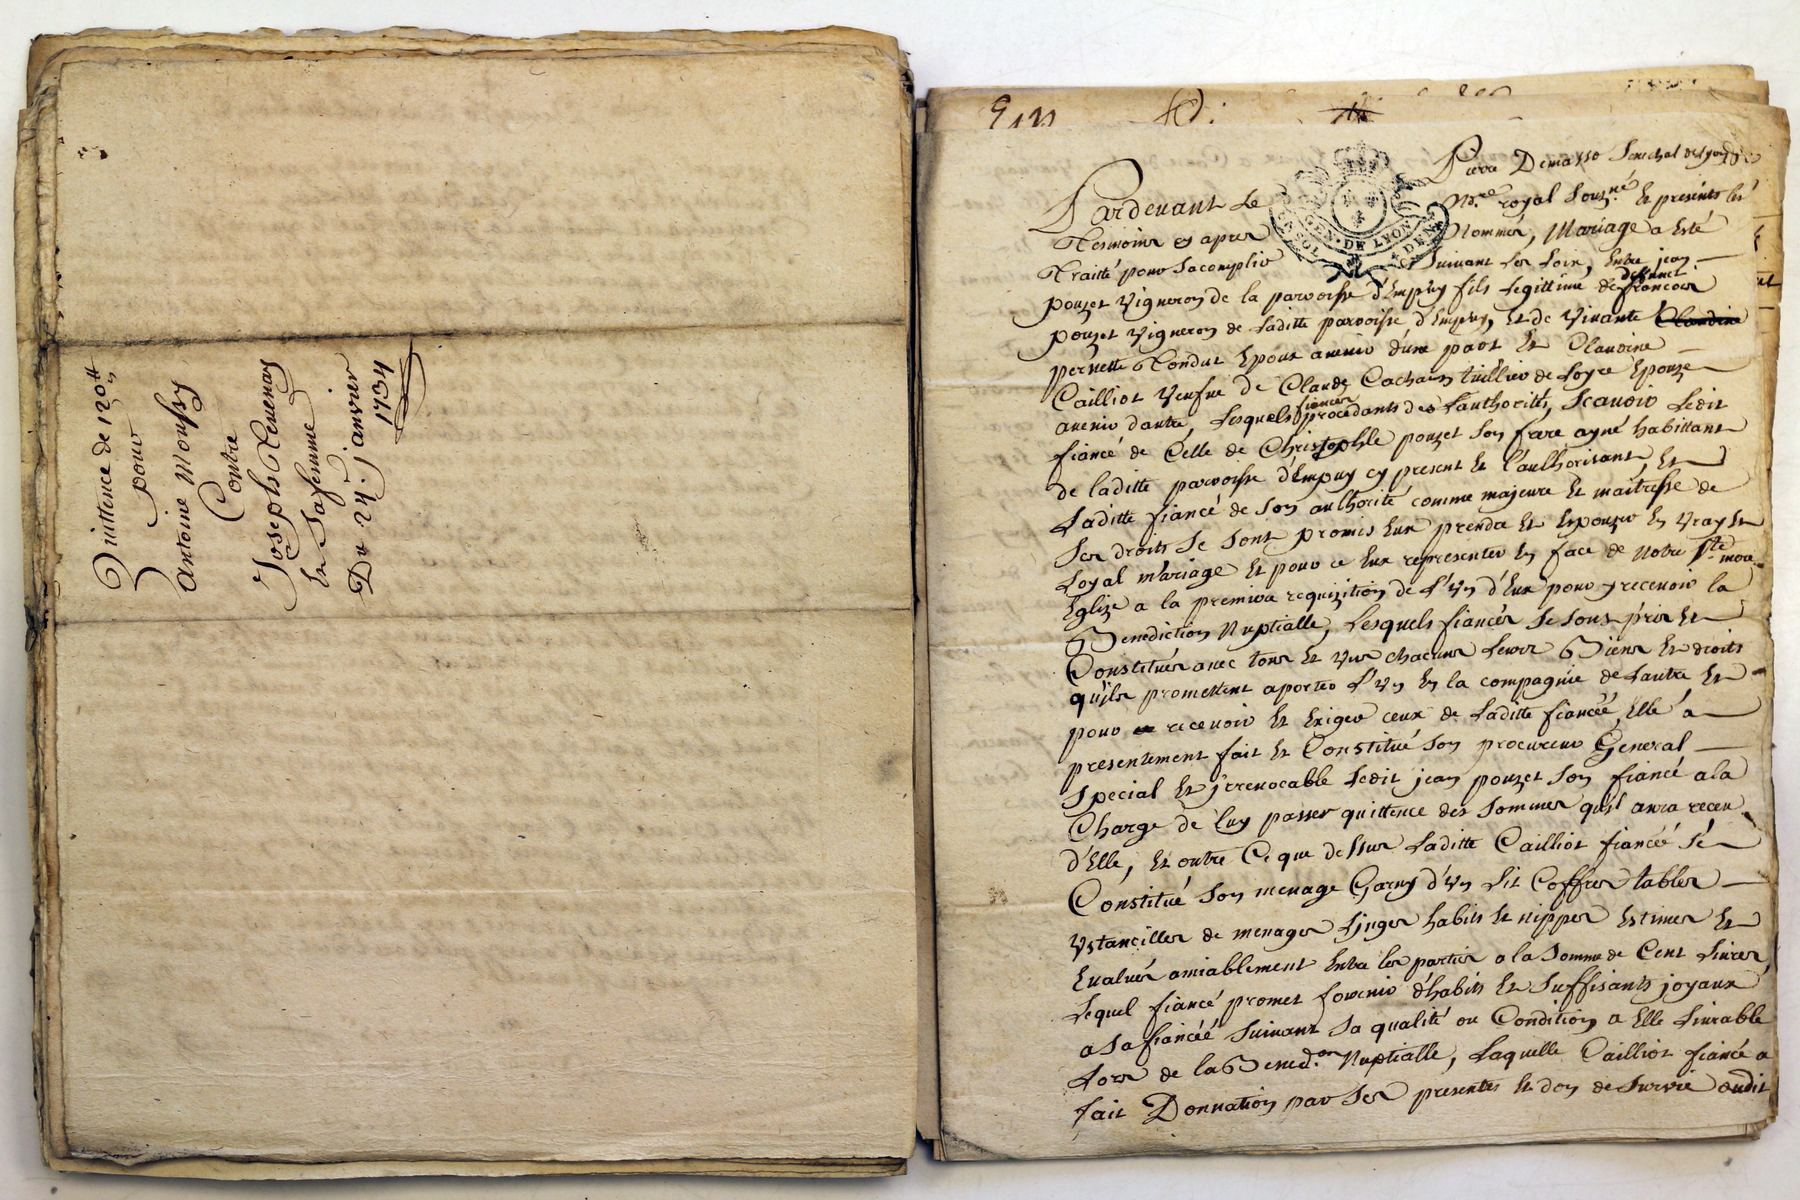 Quittence de 120tt
pour
Antoine Moussy
Contre
Joseph Tevenay
Et Sa femme
Du 24. janvier
1734
Pierre Demasso Senechal de Lyon
Pardevant Le Nre. royal Souz.né Et presents les
Tesmoins cy apres Nommés, Mariage a Esté
Traitté pour Sacomplir Suivant Les Loix, Entre jean
GEN. DE LYON
pouzet Vigneron de la parroisse d'Empuy fils Legittime de deffunct francois
pouzet Vigneron de Laditte parroisse d'Empuy, Et de Vivante Claudine
pernette Epoux avenir d'une part Et Claudine
Cailliot Veufve de Claude Cachain de Loyre Epouze
avenir dautre, Lesquels fiancés procédants des Lauthorités, Scavoir Ledit
fiancé de Celle de Christophle pouzet Son frere ayné habittant
de laditte parroisse d'Empuy cy present Et l'authorisant, Et
Laditte fiancé de Son authorité comme majeure Et maitresse de
Ses droits Se Sont promis Eux prendre Et Epouzer En Vray Et
Loyal mariage Et pour ce Eux representer En face de Notre Ste. mere
Eglize a la premiere requizition de L'Un d'Eux pour y recevoir la
Benediction Nuptialle, Lesquels fiancés Se Sont pris Et
Constitués avec tous Et Uns chacuns Leurs Biens Et droits
qu'ils promettent aporter L'Un En la compagnie de Lautre Et
pour recevoir Et Exiger ceux de Laditte fiancéé, Elle á
presentement fait Et Constitué Son procureur General
Special Et jrrevocable Ledit jean pouzet Son fiancé a la
Charge de Luy passer quittence des Sommes quil aura receu
d'Elle, Et outre Ce que dessus Laditte Cailliot fiancéé Sé
Constitué Son menage Garny d'Un Lit Coffres tables
Ustancilles de menages Linges habits Et nippes Estimes Et
Evalués amiablement Entre les parties a la Somme de Cent Livres,
Lequel fiancé promet fournir d'habits Et Suffisants joyaux
a Sa fiancéé Suivant Sa qualité ou Condition a Elle Livrable
Lors de la Bened.on Nuptialle, Laquelle Cailliot fiancé a
fait Donnation par Ses presentes Et don de Survie audit